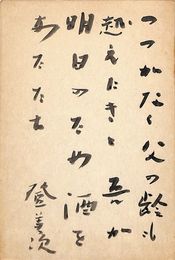 つつがなく父の齢も
越えにきと吾が
明日のため酒を
あたたむ